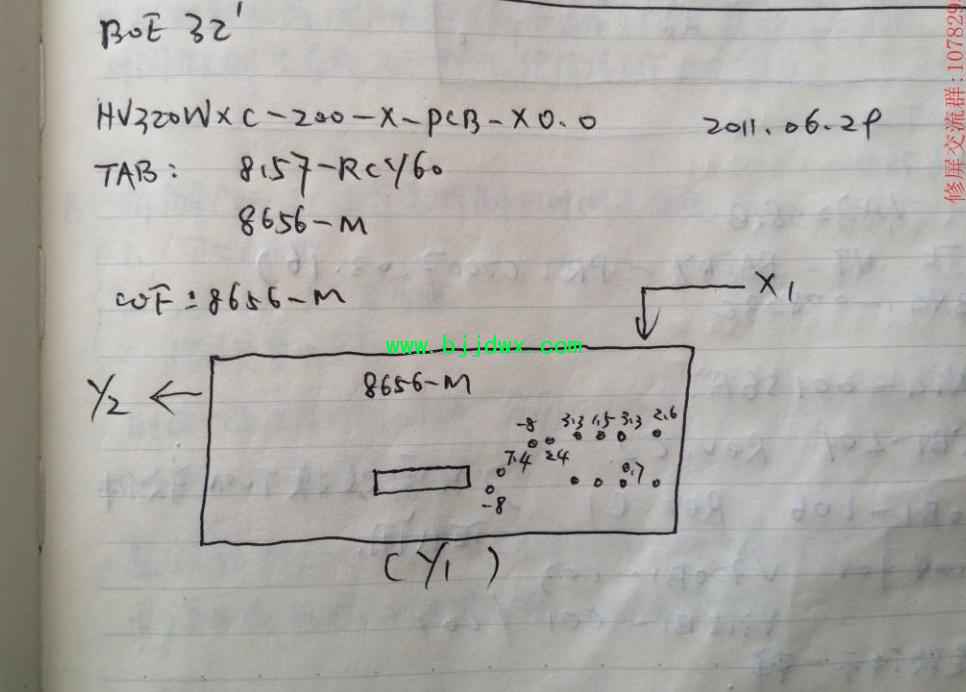 BOE 32'
HV320WXC-200-X-PCB-X0.0 2011.06.29
TAB: 8157-RCY60
8656-M
COF: 8656-M
X1
www.bjjdwx.com
Y2
8656-M
-8 3.3 1.5 3.3 2.6
7.4 24 0.7
-8
(Y1)
修屏交流群:107829